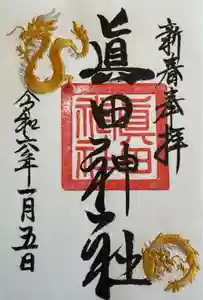 新春奉拝
眞田神社
眞田
神社
令和六年一月五日